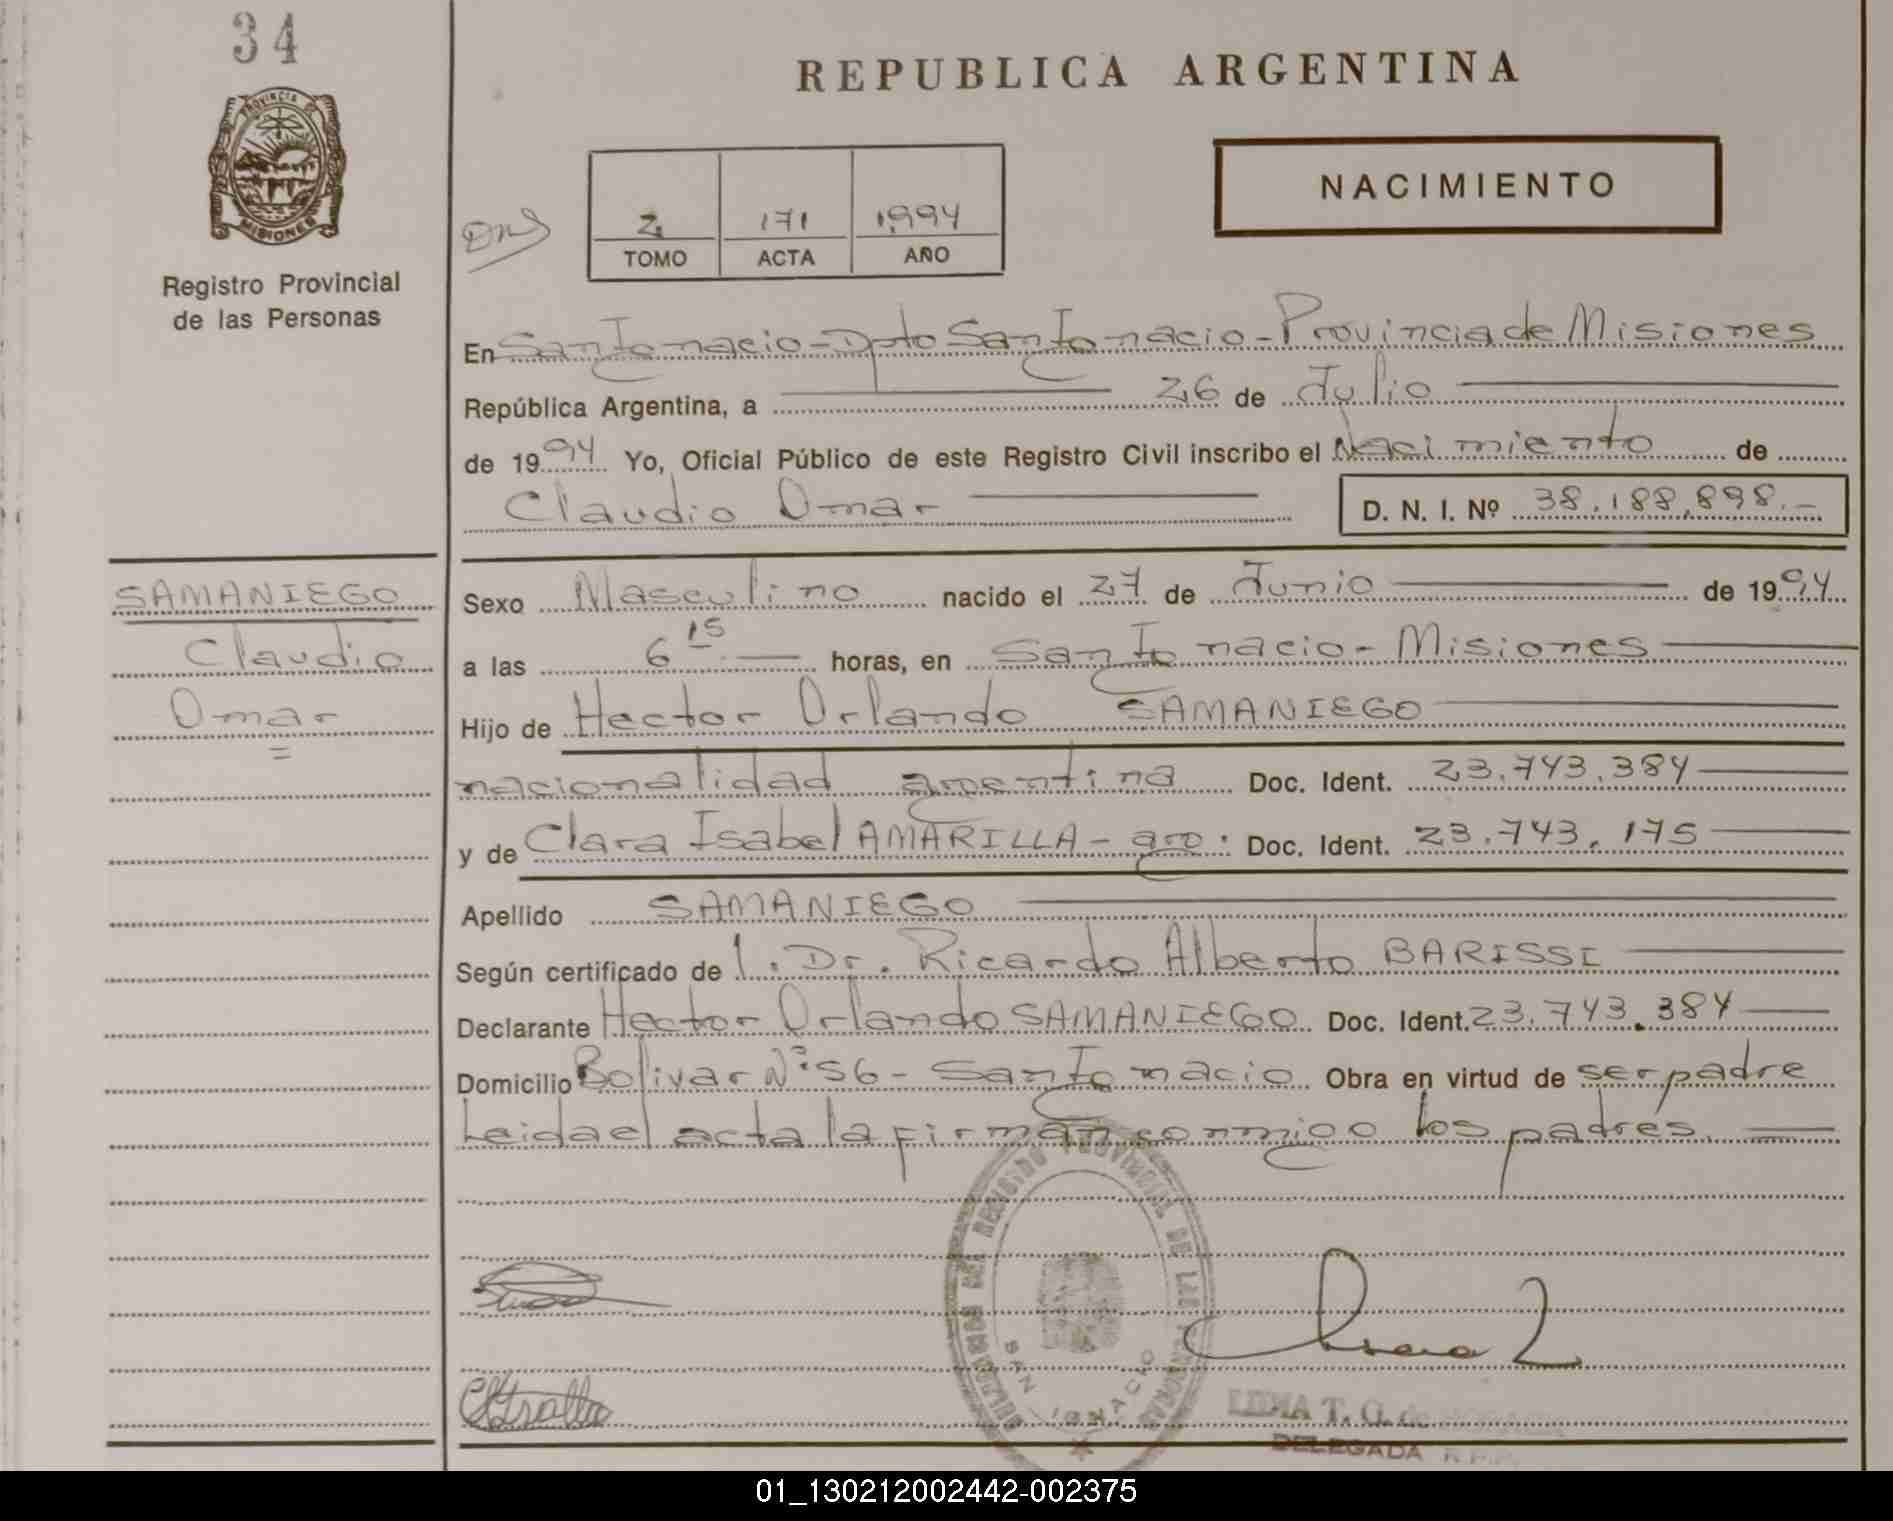 34
PROVINCIA DE
MISIONES
Registro Provincial
de las Personas
REPUBLICA ARGENTINA
NACIMIENTO
2 171 1.994
TOMO ACTA AÑO
En San Ignacio - Dpto San Ignacio - Provincia de Misiones
República Argentina, a 26 de Julio
de 1994 Yo, Oficial Público de este Registro Civil inscribo el Nacimiento de
Claudio Omar D. N. I. Nº 38.188.898.-
SAMANIEGO
Claudio
Omar
Sexo Masculino nacido el 27 de Junio de 1994
a las 6 15 horas, en San Ignacio - Misiones
Hijo de Hector Orlando SAMANIEGO
nacionalidad argentina Doc. Ident. 23.743.384
y de Clara Isabel AMARILLA - arg. Doc. Ident. 23.743.175
Apellido SAMANIEGO
Según certificado de 1. Dr. Ricardo Alberto BARISSI
Declarante Hector Orlando SAMANIEGO Doc. Ident. 23.743.384
Domicilio Bolivar Nº 56 - San Ignacio Obra en virtud de ser padre
Leida el acta la firman conmigo los padres.
REGISTRO PROVINCIAL DE LAS PERSONAS
SAN IGNACIO
T. G. de
DELEGADA R.P.P.
01_130212002442-002375